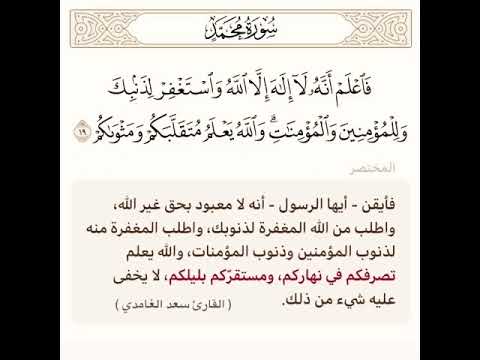 سُورَةُ مُحَمَّدٍ
فَٱعۡلَمۡ أَنَّهُۥ لَآ إِلَٰهَ إِلَّا ٱللَّهُ وَٱسۡتَغۡفِرۡ لِذَنۢبِكَ
وَلِلۡمُؤۡمِنِينَ وَٱلۡمُؤۡمِنَٰتِۗ وَٱللَّهُ يَعۡلَمُ مُتَقَلَّبَكُمۡ وَمَثۡوَىٰكُمۡ ١٩
المختصر
فأيقن - أيها الرسول - أنه لا معبود بحق غير الله،
واطلب من الله المغفرة لذنوبك، واطلب المغفرة منه
لذنوب المؤمنين وذنوب المؤمنات، والله يعلم
تصرفكم في نهاركم، ومستقرّكم بليلكم، لا يخفى
عليه شيء من ذلك.
( القارئ سعد الغامدي )